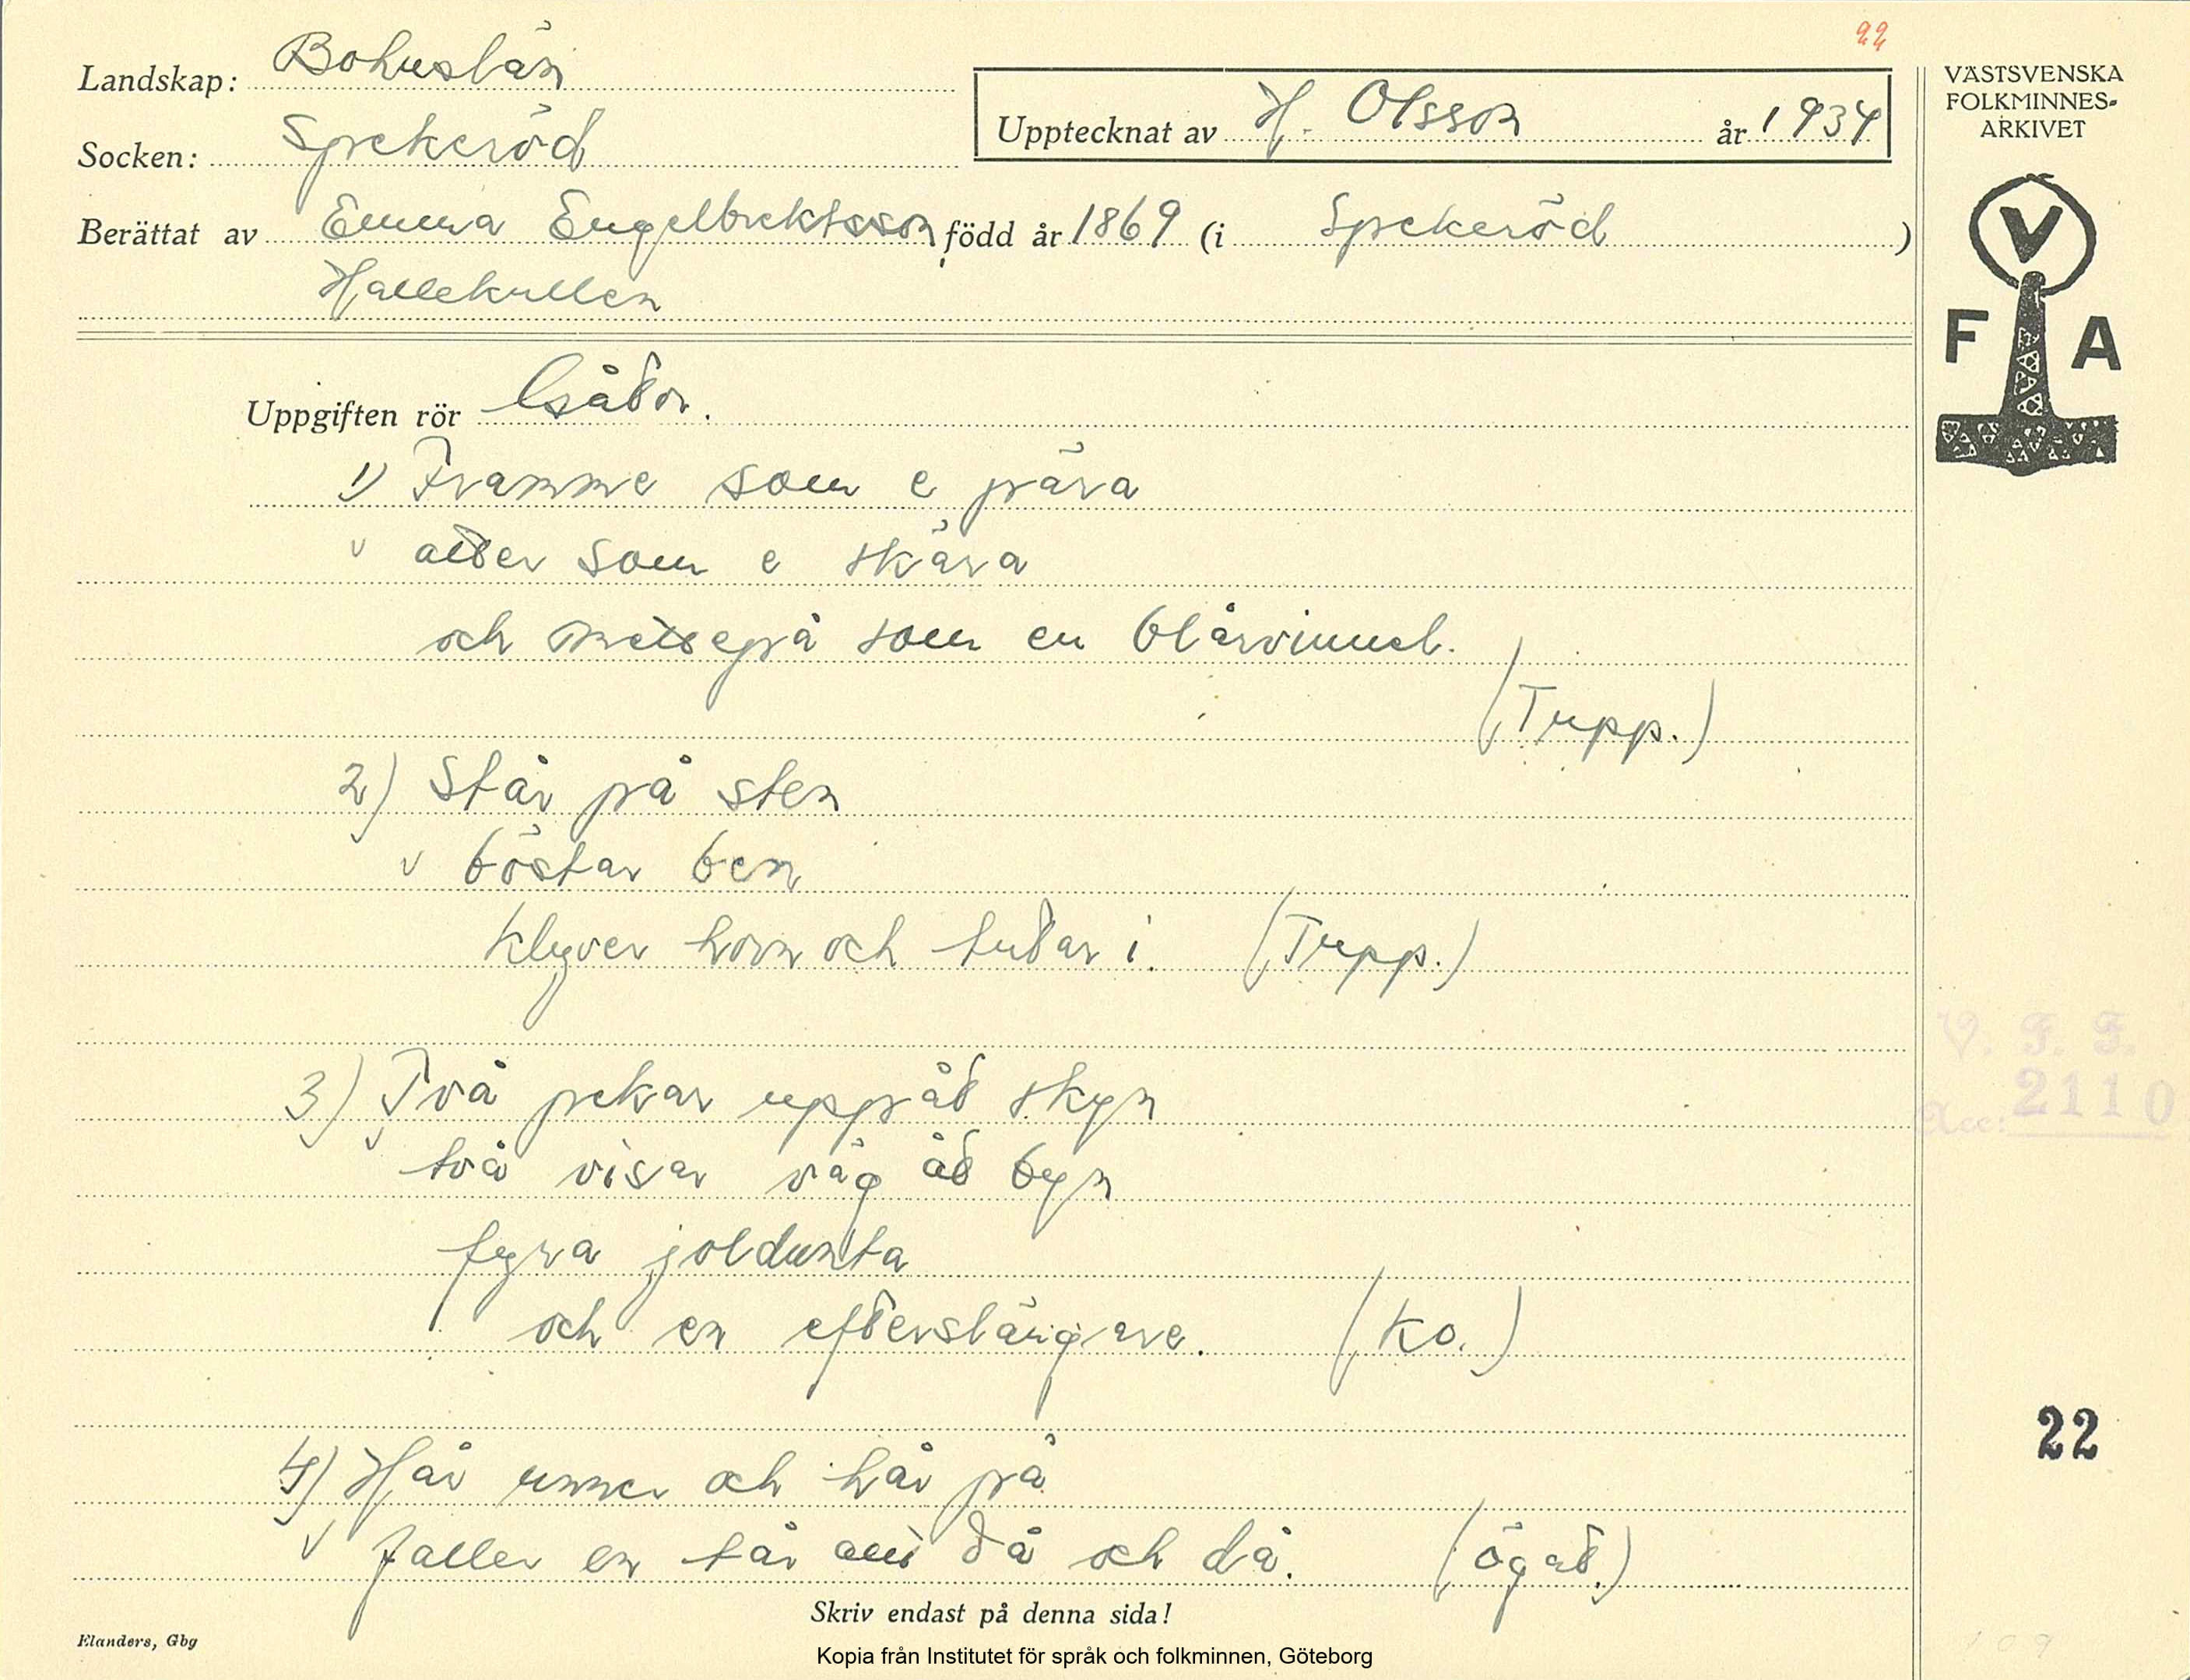 22
Landskap: Bohuslän
Socken: Spekeröd
Upptecknat av H. Olsson år 1934
Berättat av Emma Engelbrektsson, född år 1869 (i Spekeröd)
Hallekullen
VÄSTSVENSKA
FOLKMINNES-
ARKIVET
V
F A
Uppgiften rör Gåtor.
1) Framme som e pära
atter som e skära
och mittepå som en blårvinnel.
(Tupp.)
2) Står på sten
böstar ben
Klyver horn och tutar i. (Tupp.)
3) Två pekar uppåt skyn
två visar väg åt byn
fyra joldunta
och en efterslängare. (Ko.)
4) Hår unner och hår på
faller en tår då och då. (ögat.)
V. F. F.
Acc: 2110
22
Skriv endast på denna sida!
Elanders, Gbg
Kopia från Institutet för språk och folkminnen, Göteborg
109